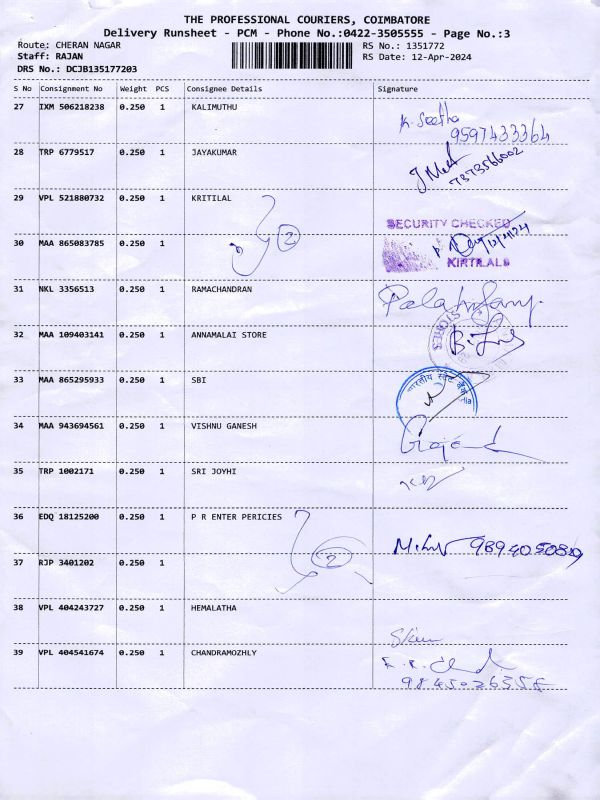 THE PROFESSIONAL COURIERS, COIMBATORE
Delivery Runsheet - PCM - Phone No.:0422-3505555 - Page No.:3
Route: CHERAN NAGAR RS No.: 1351772
Staff: RAJAN RS Date: 12-Apr-2024
DRS No.: DCJB135177203
S No Consignment No Weight PCS Consignee Details Signature
27 IXM 506218238 0.250 1 KALIMUTHU
K. Seetha
9597433364
28 TRP 6779517 0.250 1 JAYAKUMAR
7373566002
29 VPL 521880732 0.250 1 KRITILAL
SECURITY CHECKED
2
30 MAA 865083785 0.250 1
KIRTILALS
31 NKL 3356513 0.250 1 RAMACHANDRAN
32 MAA 109403141 0.250 1 ANNAMALAI STORE
STORES
33 MAA 865295933 0.250 1 SBI
भारतीय स्टेट बैंक
34 MAA 943694561 0.250 1 VISHNU GANESH
35 TRP 1002171 0.250 1 SRI JOYHI
36 EDQ 18125200 0.250 1 P R ENTER PERICIES
2
37 RJP 3401202 0.250 1
38 VPL 404243727 0.250 1 HEMALATHA
39 VPL 404541674 0.250 1 CHANDRAMOZHLY